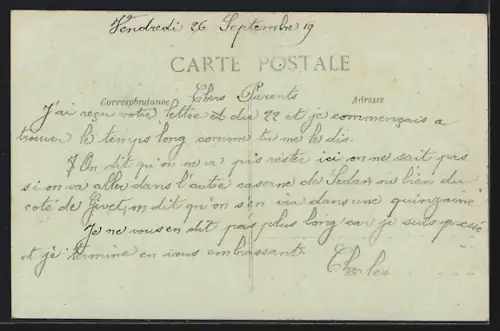 Vendredi 26 Septembre 19
CARTE POSTALE
Correspondance Chers Parents Adresse
J'ai reçus votre lettre et die 22 et je commençais a
trouver le temps long comme tu me le dis.
On dit qu'on ne va pas rester ici on ne sait pas
si on va aller dans l'autre caserne de Sedan ou bien du
coté de Givet, on dit qu'on s'en va dans une quinzaine
Je ne vous en dit pas plus long car je suis pressé
et je termine en vous embrassant.
Charles